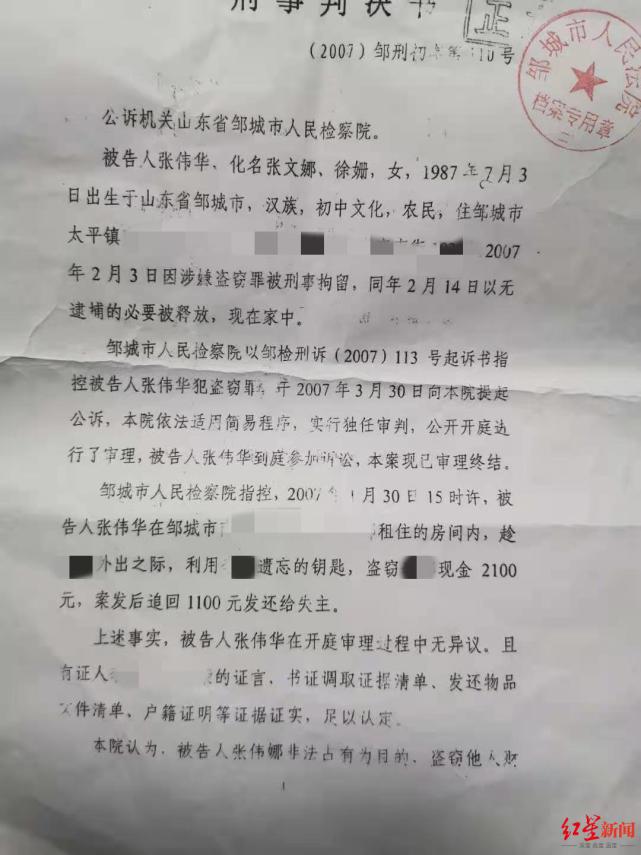 刑事判决书
正
(2007)邹刑初 10号
邹城市人民法院
档案专用章
公诉机关山东省邹城市人民检察院。
被告人张伟华、化名张文娜、徐姗，女，1987年7月3
日出生于山东省邹城市，汉族，初中文化，农民，住邹城市
太平镇 2007
年2月3日因涉嫌盗窃罪被刑事拘留，同年2月14日以无
逮捕的必要被释放，现在家中。
邹城市人民检察院以邹检刑诉(2007)113号起诉书指
控被告人张伟华犯盗窃罪，并2007年3月30日向本院提起
公诉，本院依法适用简易程序，实行独任审判，公开开庭进
行了审理，被告人张伟华到庭参加诉讼，本案现已审理终结。
邹城市人民检察院指控，2007年1月30日15时许，被
告人张伟华在邹城市 租住的房间内，趁
外出之际，利用 遗忘的钥匙，盗窃 现金2100
元，案发后追回1100元发还给失主。
上述事实，被告人张伟华在开庭审理过程中无异议。且
有证人 的证言，书证调取证据清单、发还物品
文件清单、户籍证明等证据证实，足以认定。
本院认为，被告人张伟娜非法占有为目的，盗窃他人财
1
红星新闻